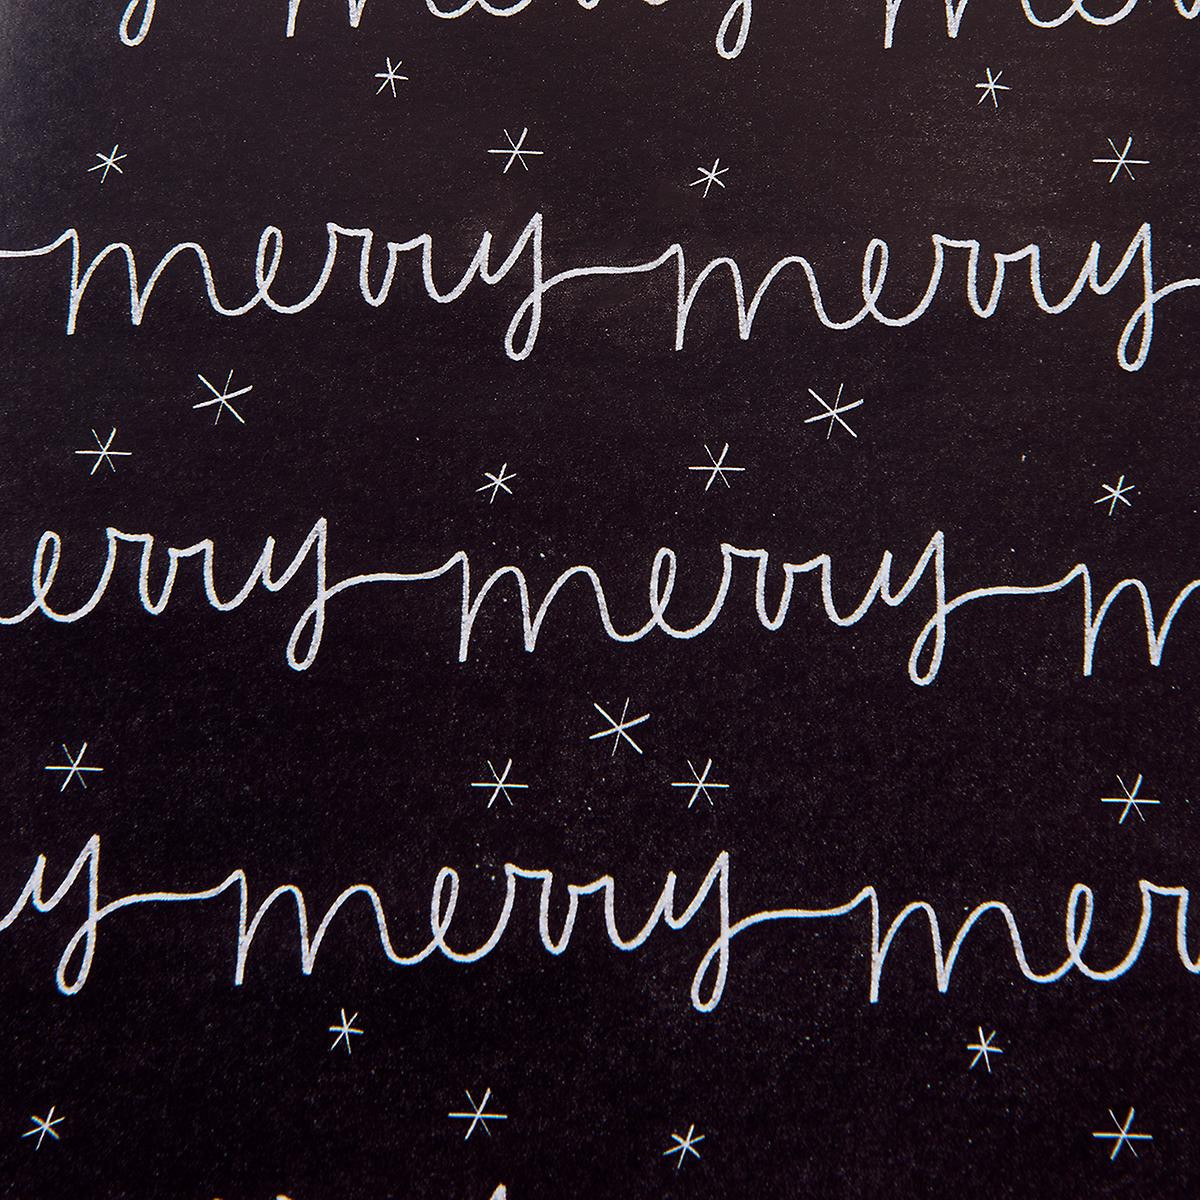 merry m
merry merry
erry merry m
y merry mer